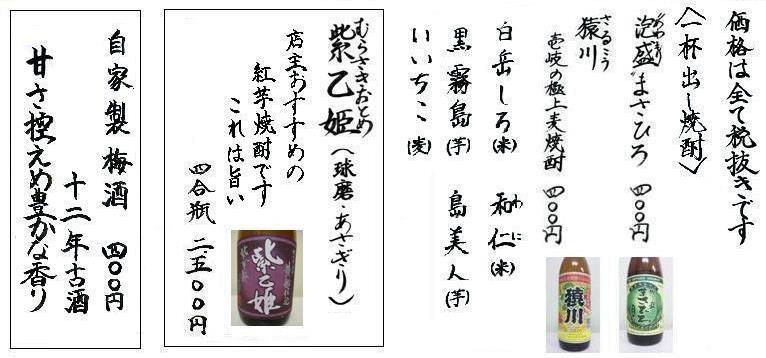 価格は全て税抜きです
〈一杯出し焼酎〉
あわもり
泡盛 まさひろ 四〇〇円
さるこう
猿川
壱岐の極上麦焼酎 四〇〇円
白岳しろ(米) わに
和仁(米)
黒霧島(芋) 島美人(芋)
いいちこ(麦)
猿川
まさひろ
むらさきおとめ
紫乙姫(球磨・あさぎり)
店主おすすめの
紅芋焼酎です
これは旨い
四合瓶 二、五〇〇円
紫乙姫
自家製梅酒 四〇〇円
十二年古酒
甘さ控えめ豊かな香り